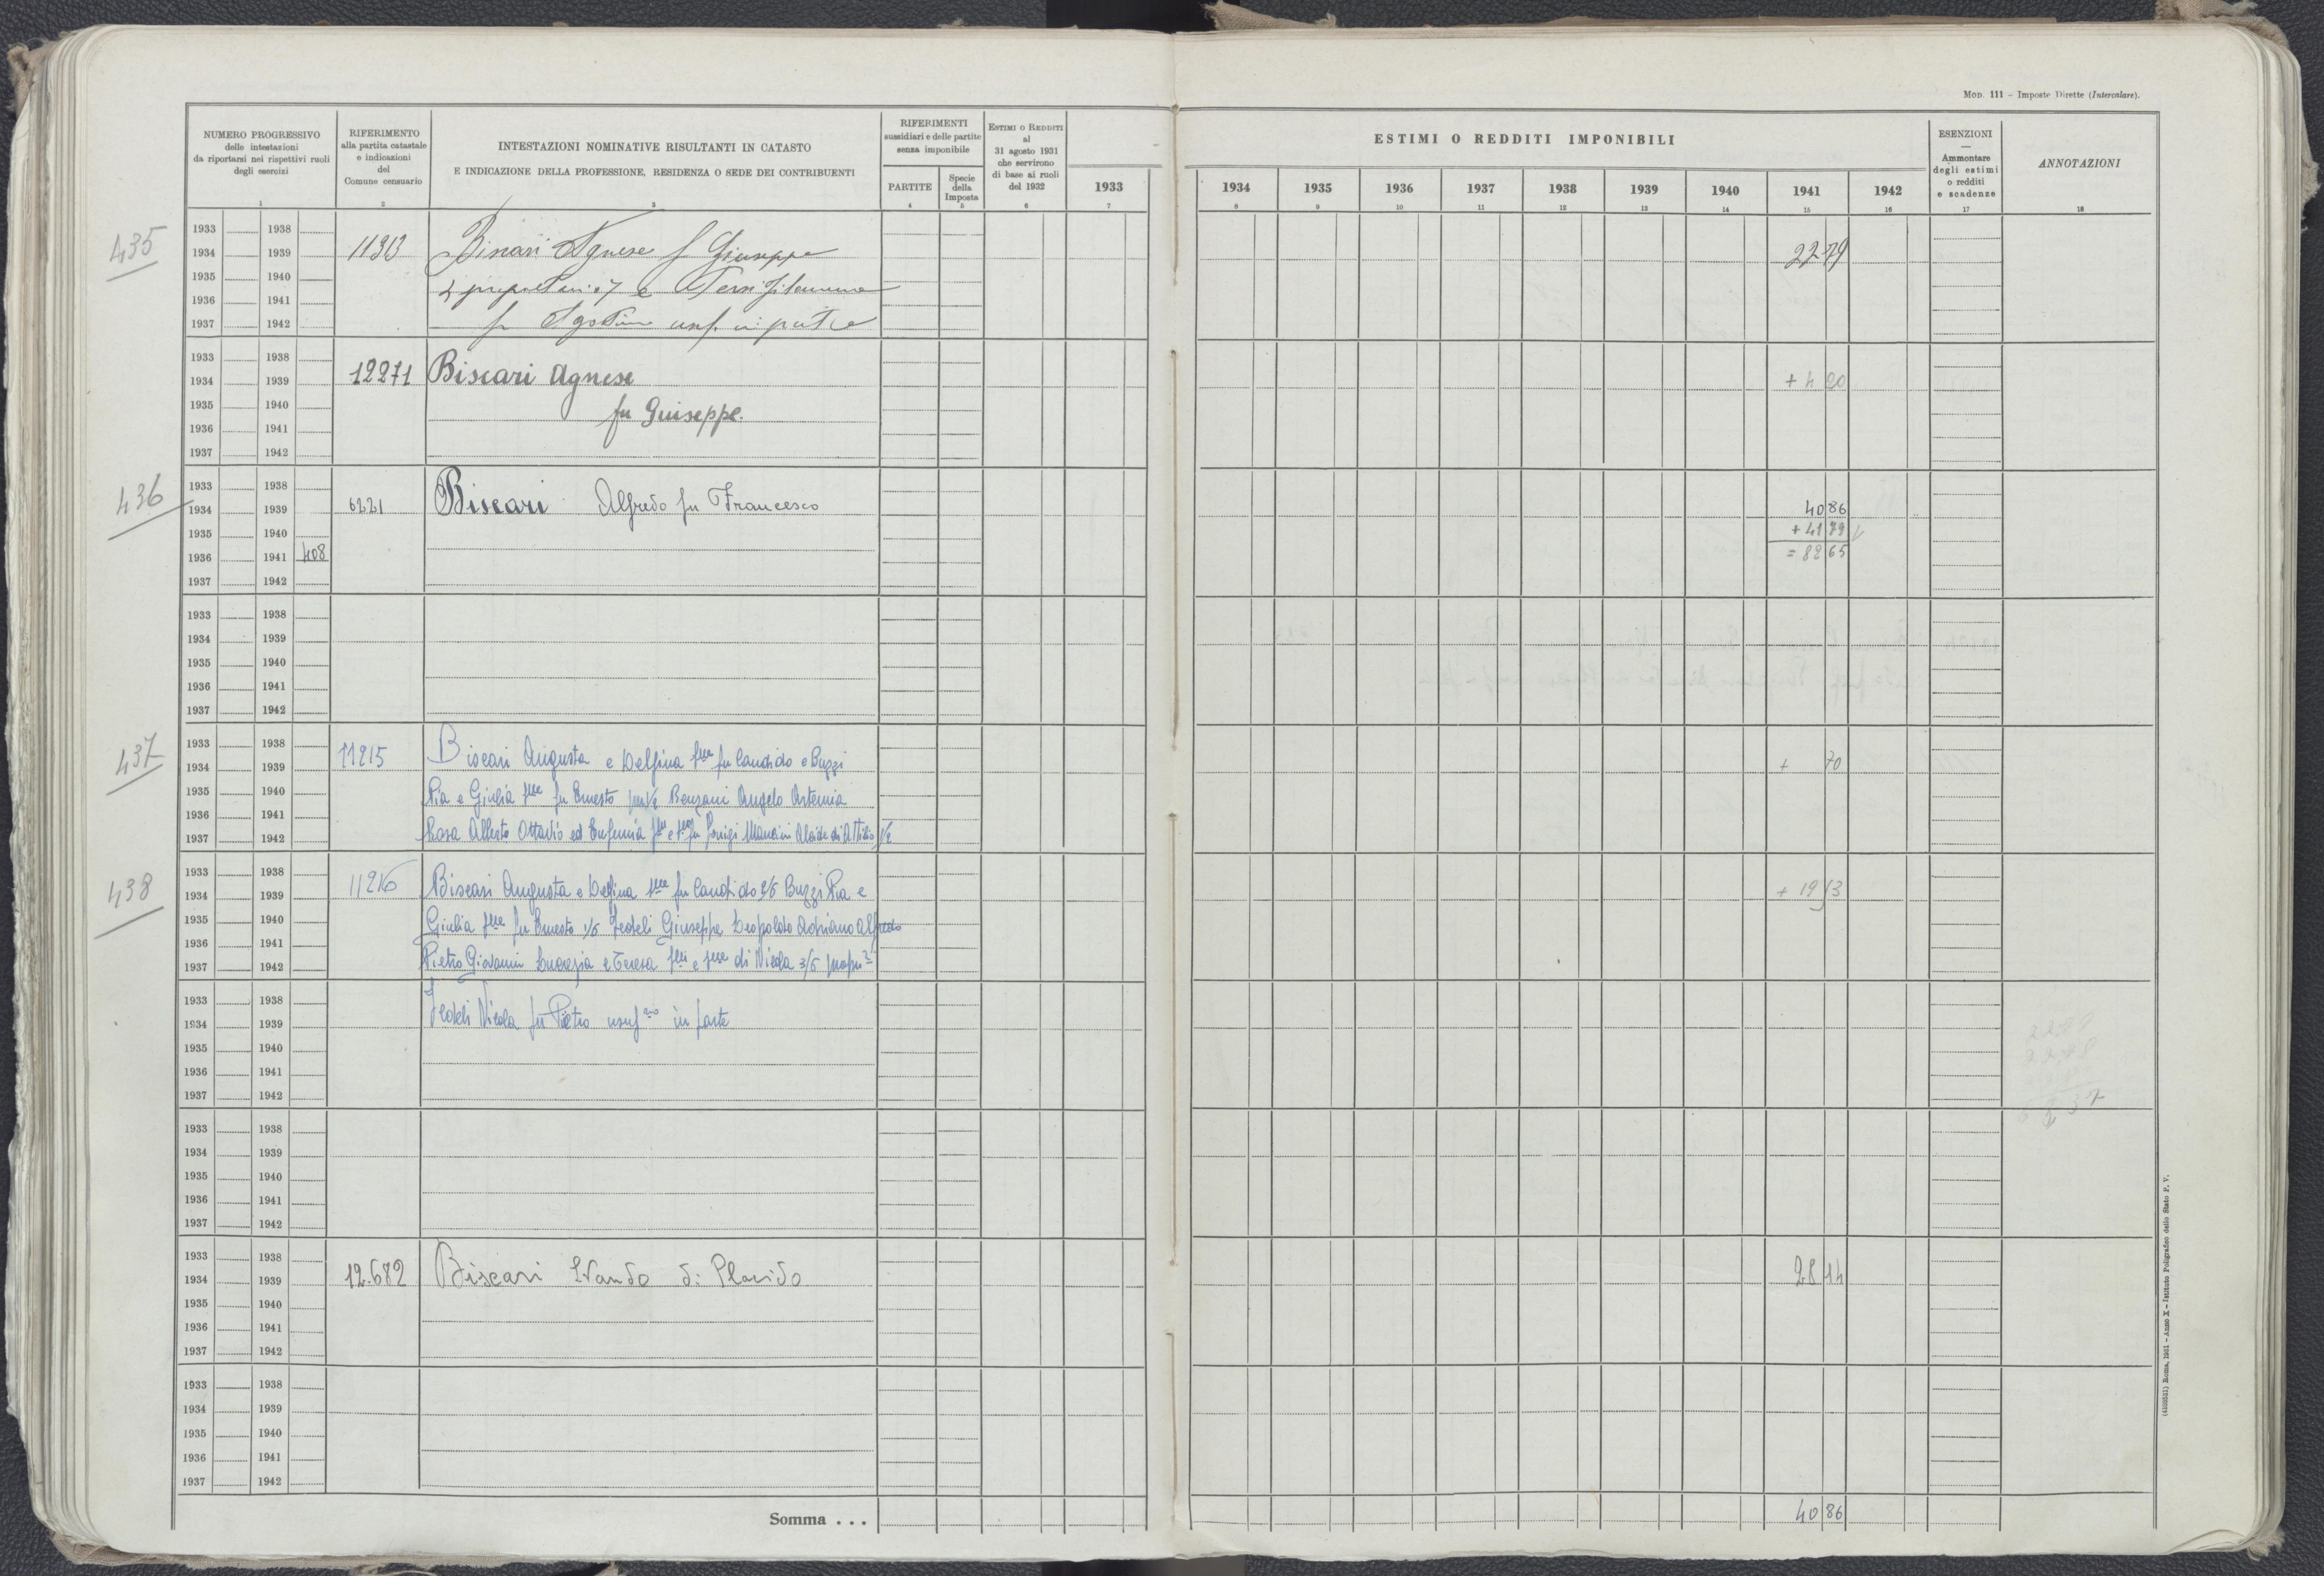 Mod. 111 – Imposte Dirette (Intercalare).
NUMERO PROGRESSIVO
delle intestazioni
da riportarsi nei rispettivi ruoli
degli esercizi
1
RIFERIMENTO
alla partita catastale
e indicazioni
del
Comune censuario
2
INTESTAZIONI NOMINATIVE RISULTANTI IN CATASTO
E INDICAZIONE DELLA PROFESSIONE, RESIDENZA O SEDE DEI CONTRIBUENTI
3
RIFERIMENTI
sussidiari e delle partite
senza imponibile
PARTITE
4
Specie
della
Imposta
5
Estimi o Redditi
al
31 agosto 1931
che servirono
di base ai ruoli
del 1932
6
ESTIMI O REDDITI IMPONIBILI
1933 1934 1935 1936 1937 1938 1939 1940 1941 1942
7 8 9 10 11 12 13 14 15 16
ESENZIONI
—
Ammontare
degli estimi
o redditi
e scadenze
17
ANNOTAZIONI
18
435
1933 1938
1934 1939 Agnese Giuseppe 22 79
1935 1940
1936 1941
1937 1942
1933 1938
1934 1939 12271 Biscari Agnese + 4 20
1935 1940 fu Guiseppe.
1936 1941
1937 1942
436
1933 1938
1934 1939 6221 Biscari Alfredo fu Francesco 40 86
1935 1940 + 41 79
1936 1941 408 = 82 65
1937 1942
1933 1938
1934 1939
1935 1940
1936 1941
1937 1942
437
1933 1938
1934 1939 11215 Biscari Augusta e Delfina fu Candido e Buzzi + 70
1935 1940 Pia e Giulia fu Ernesto Angelo Artemia
1936 1941
1937 1942 Rosa Alberto Ottavio ed Eufemia fu Luigi Mancini di Attilio 1/2
438
1933 1938
1934 1939 11216 Biscari Augusta e Delfina fu Candido 2/5 Buzzi Pia e + 19 53
1935 1940 Giulia fu Ernesto 1/5 Fedeli Giuseppe Leopoldo Adriano Alfredo
1936 1941
1937 1942 Pietro Giovanni Lucrezia e Teresa di Nicola 3/5
1933 1938
1934 1939 Fedeli Nicola fu Pietro in parte
1935 1940
1936 1941
1937 1942
1933 1938
1934 1939
1935 1940
1936 1941
1937 1942
1933 1938
1934 1939 12.682 Biscari di Placido 28 14
1935 1940
1936 1941
1937 1942
1933 1938
1934 1939
1935 1940
1936 1941
1937 1942
Somma . . . 40 86